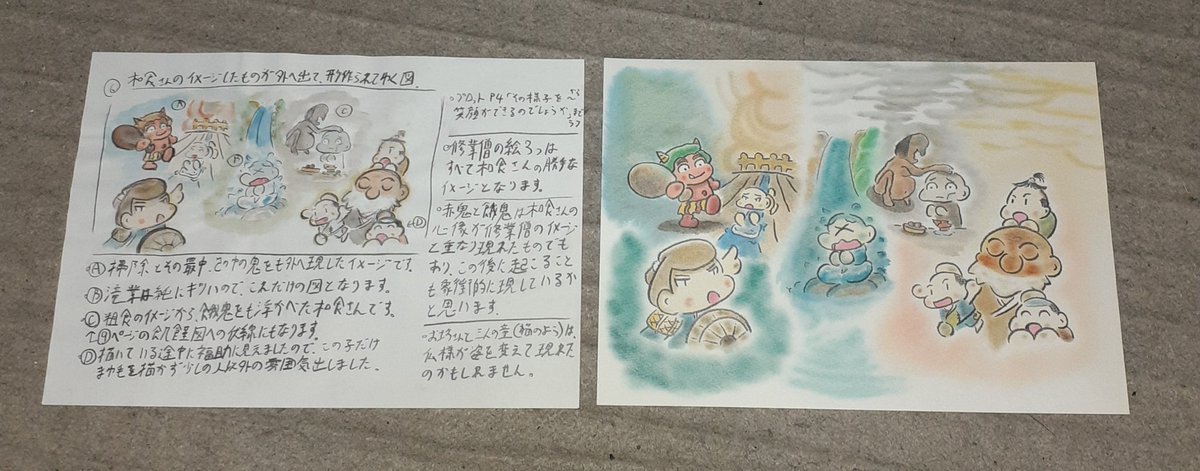 ⑥ 和食さんのイメージしたものが外へ出て、形作られてゆく図
Ⓐ
Ⓒ
Ⓓ
Ⓐ掃除とその最中、心の中の鬼をも外へ現したイメージです。
Ⓑ滝業は絵にキリいので、これだけの図となります。
Ⓒ粗食のイメージから餓鬼をも浮かべた和食さんです。
↑9ページの飢饉図への伏線にもなります。
Ⓓ描いている途中に福助に見えましたので、この子だけ
まゆ毛を描かず少しの人以外の雰囲気出しました。
・プロット P4「その様子を〜
笑顔ができるのでしょうか」まで
・修業僧の絵3つは
すべて和食さんの勝手な
イメージとなります。
・赤鬼と餓鬼は和食さんの
心像が修業僧のイメージ
と重なり現れたものでも
あり、この後に起こること
も象徴的に現しているか
と思います。
・お坊さんと三人の童(猫のよう)は、
仏様が姿を変えて現れた
のかもしれません。